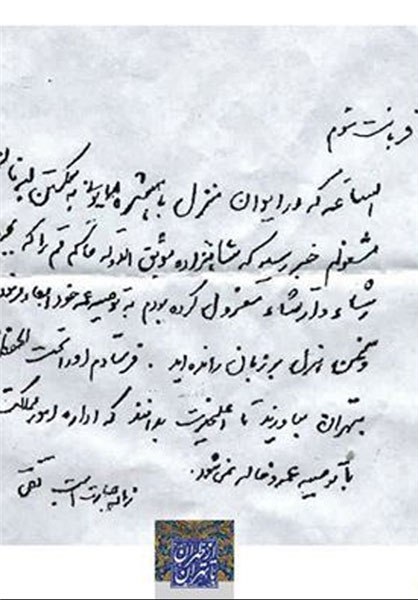 قربانت شوم
الساعه که در ایوان منزل با همشیره همایونی به شکستن لبه نان
مشغولم خبر رسید که شاهزاده موثق الدوله حاکم قم را که
رشاء و ارتشاء معزول کرده بودم به توصیه عمه خود ابقاء
و سخن هزل بر زبان رانده اید . فرستادم او را تحت الحفظ
بتهران بیاورند تا اعلیحضرت بدانند که اداره امور مملکت
با توصیه عمه و خاله نمی شود .
زیاده جسارت است تقی
از طهران
تا تهران